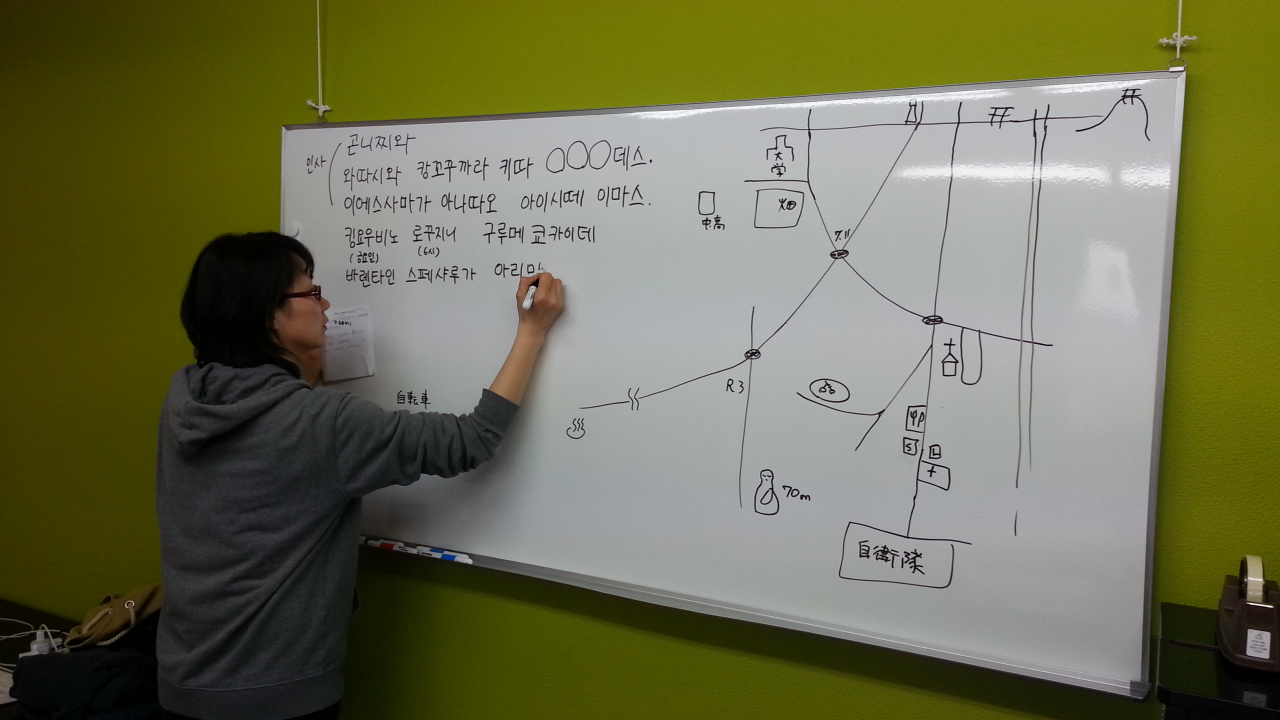 인사
곤니찌와
와따시와 캉꼬꾸까라 키따 ○○○데스.
이에스사마가 아나따오 아이시떼 이마스.
킹요우비노 로꾸지니 구루메 쿄카이데
(금요일) (6시)
바렌타인 스페샤루가 아리마
自転車
大学
畑
中高
R3
70m
自衛隊